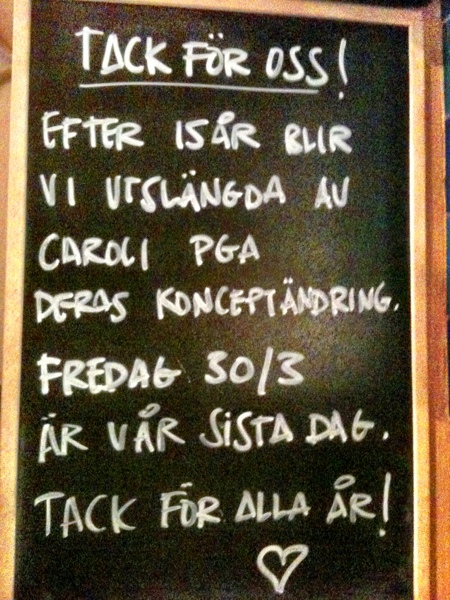 TACK FÖR OSS!
EFTER 15 ÅR BLIR
VI UTSLÄNGDA AV
CAROLI PGA
DERAS KONCEPTÄNDRING.
FREDAG 30/3
ÄR VÅR SISTA DAG.
TACK FÖR ALLA ÅR!